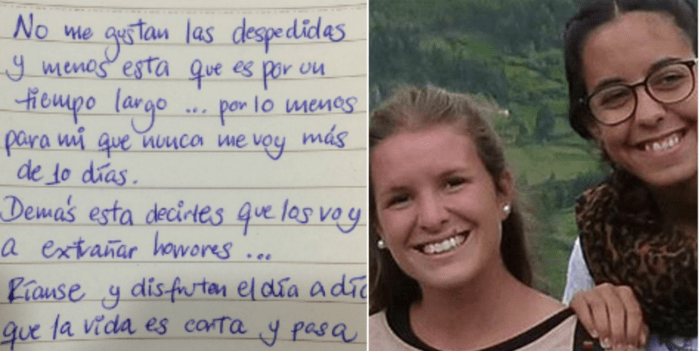 No me gustan las despedidas
y menos esta que es por un
tiempo largo ... por lo menos
para mi que nunca me voy más
de 10 días.
Demás esta decirles que los voy
a extrañar horrores ...
Ríanse y disfruten el día a día
que la vida es corta y pasa